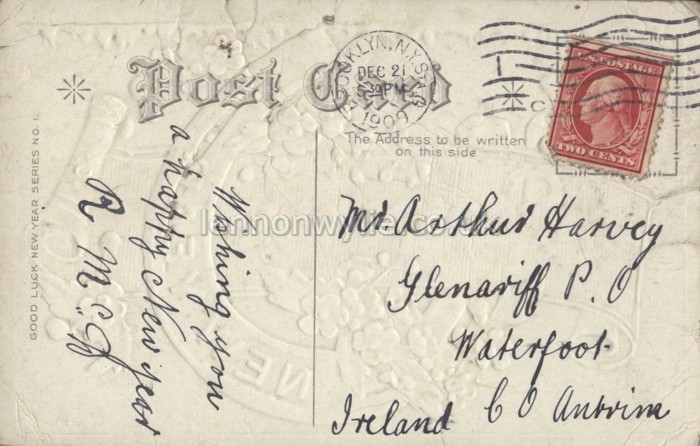 Post Card
BROOKLYN, N.Y. STA.
DEC 21
30 PM
1909
U.S. POSTAGE
TWO CENTS
The Address to be written
on this side
GOOD LUCK NEW YEAR SERIES NO. 1.
Wishing you
a happy New year
R McN
lennonwylie
Mr. Arthur Harvey
Glenariff P. O
Waterfoot
Ireland Co Antrim
NEW